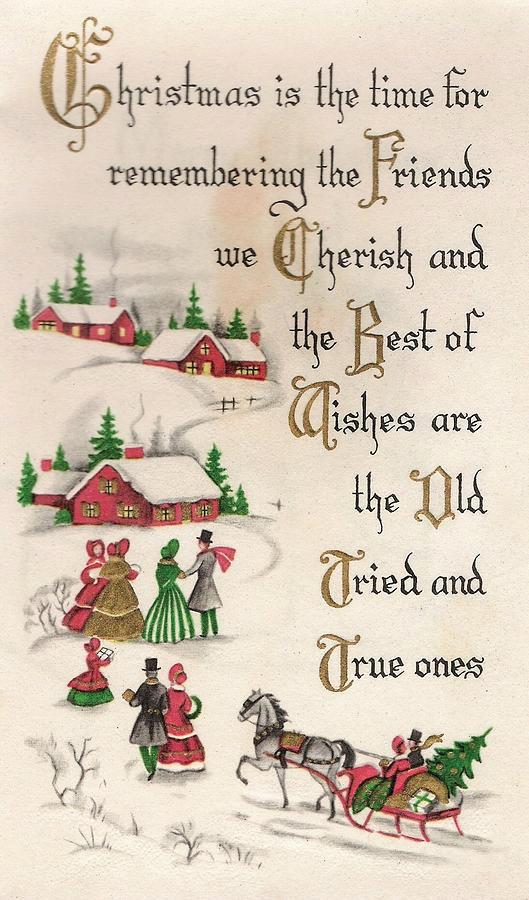 Christmas is the time for
remembering the Friends
we Cherish and
the Best of
Wishes are
the Old
Tried and
True ones